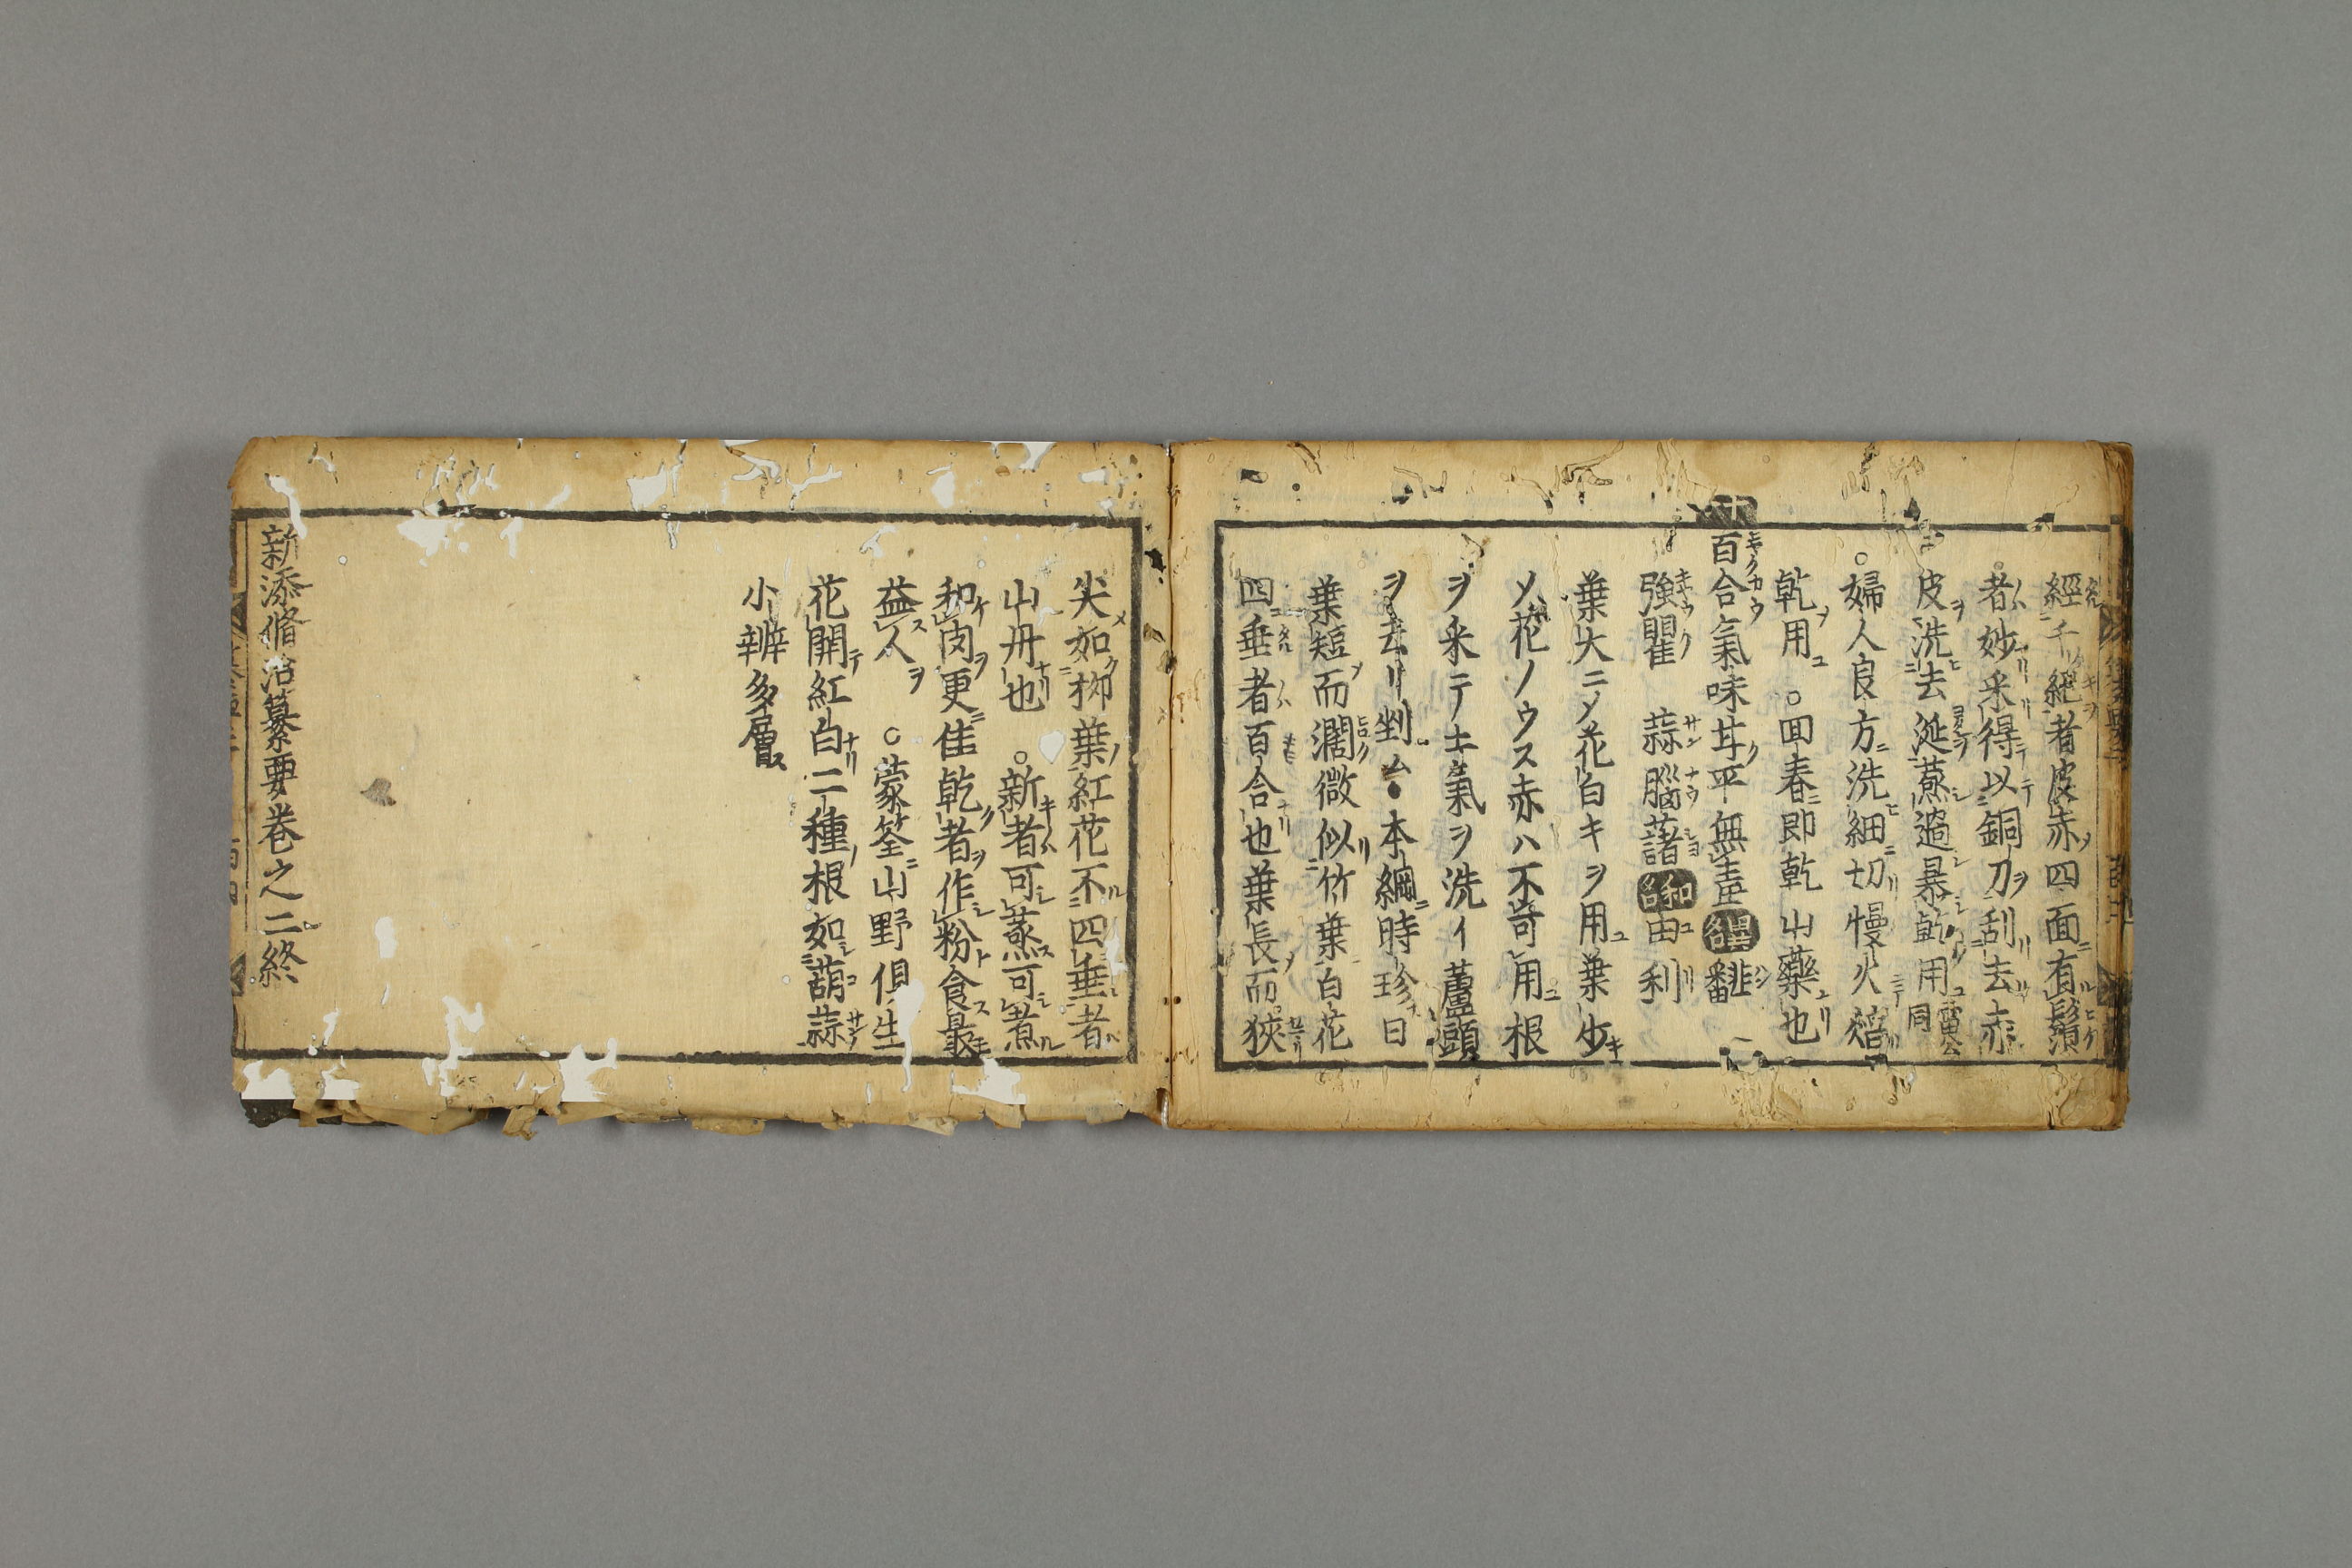 經千ノ絶者皮赤四面有鬚
者妙釆得以銅刀刮去赤
皮洗去涎蒸過暴乾用雷公同
○婦人良方洗細切慢火焙
乾用○回春即乾山藥也
百合氣味甘平無毒異名
強瞿 蒜腦藷和名由利
葉大ニメ花白キヲ用葉少
メ花ノウス赤ハ不可用根
ヲ釆テ土氣ヲ洗イ蘆頭
ヲ去リ剉ム●本綱時珍曰
葉短而濶微似竹葉白花
四垂者百合也葉長而狹
尖如栁葉紅花不四垂者
山丹也○新者可蒸可煮
和肉更佳乾者作粉食最
益人○蒙筌山野俱生
花開紅白二種根如葫蒜
小辨多層
新添脩治纂要巻之二終